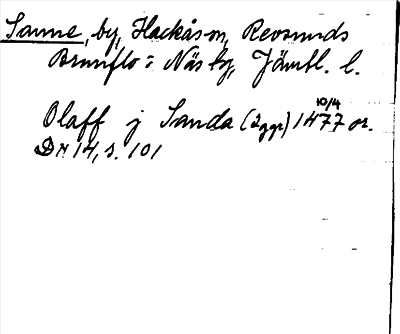 Sanne, by, Hackås sn, Revsunds
Brunflo o. Näs tg, Jämtl. l.
10/4
Olaff j Sanda (2ggr) 1477 or.
DN 14, s. 101